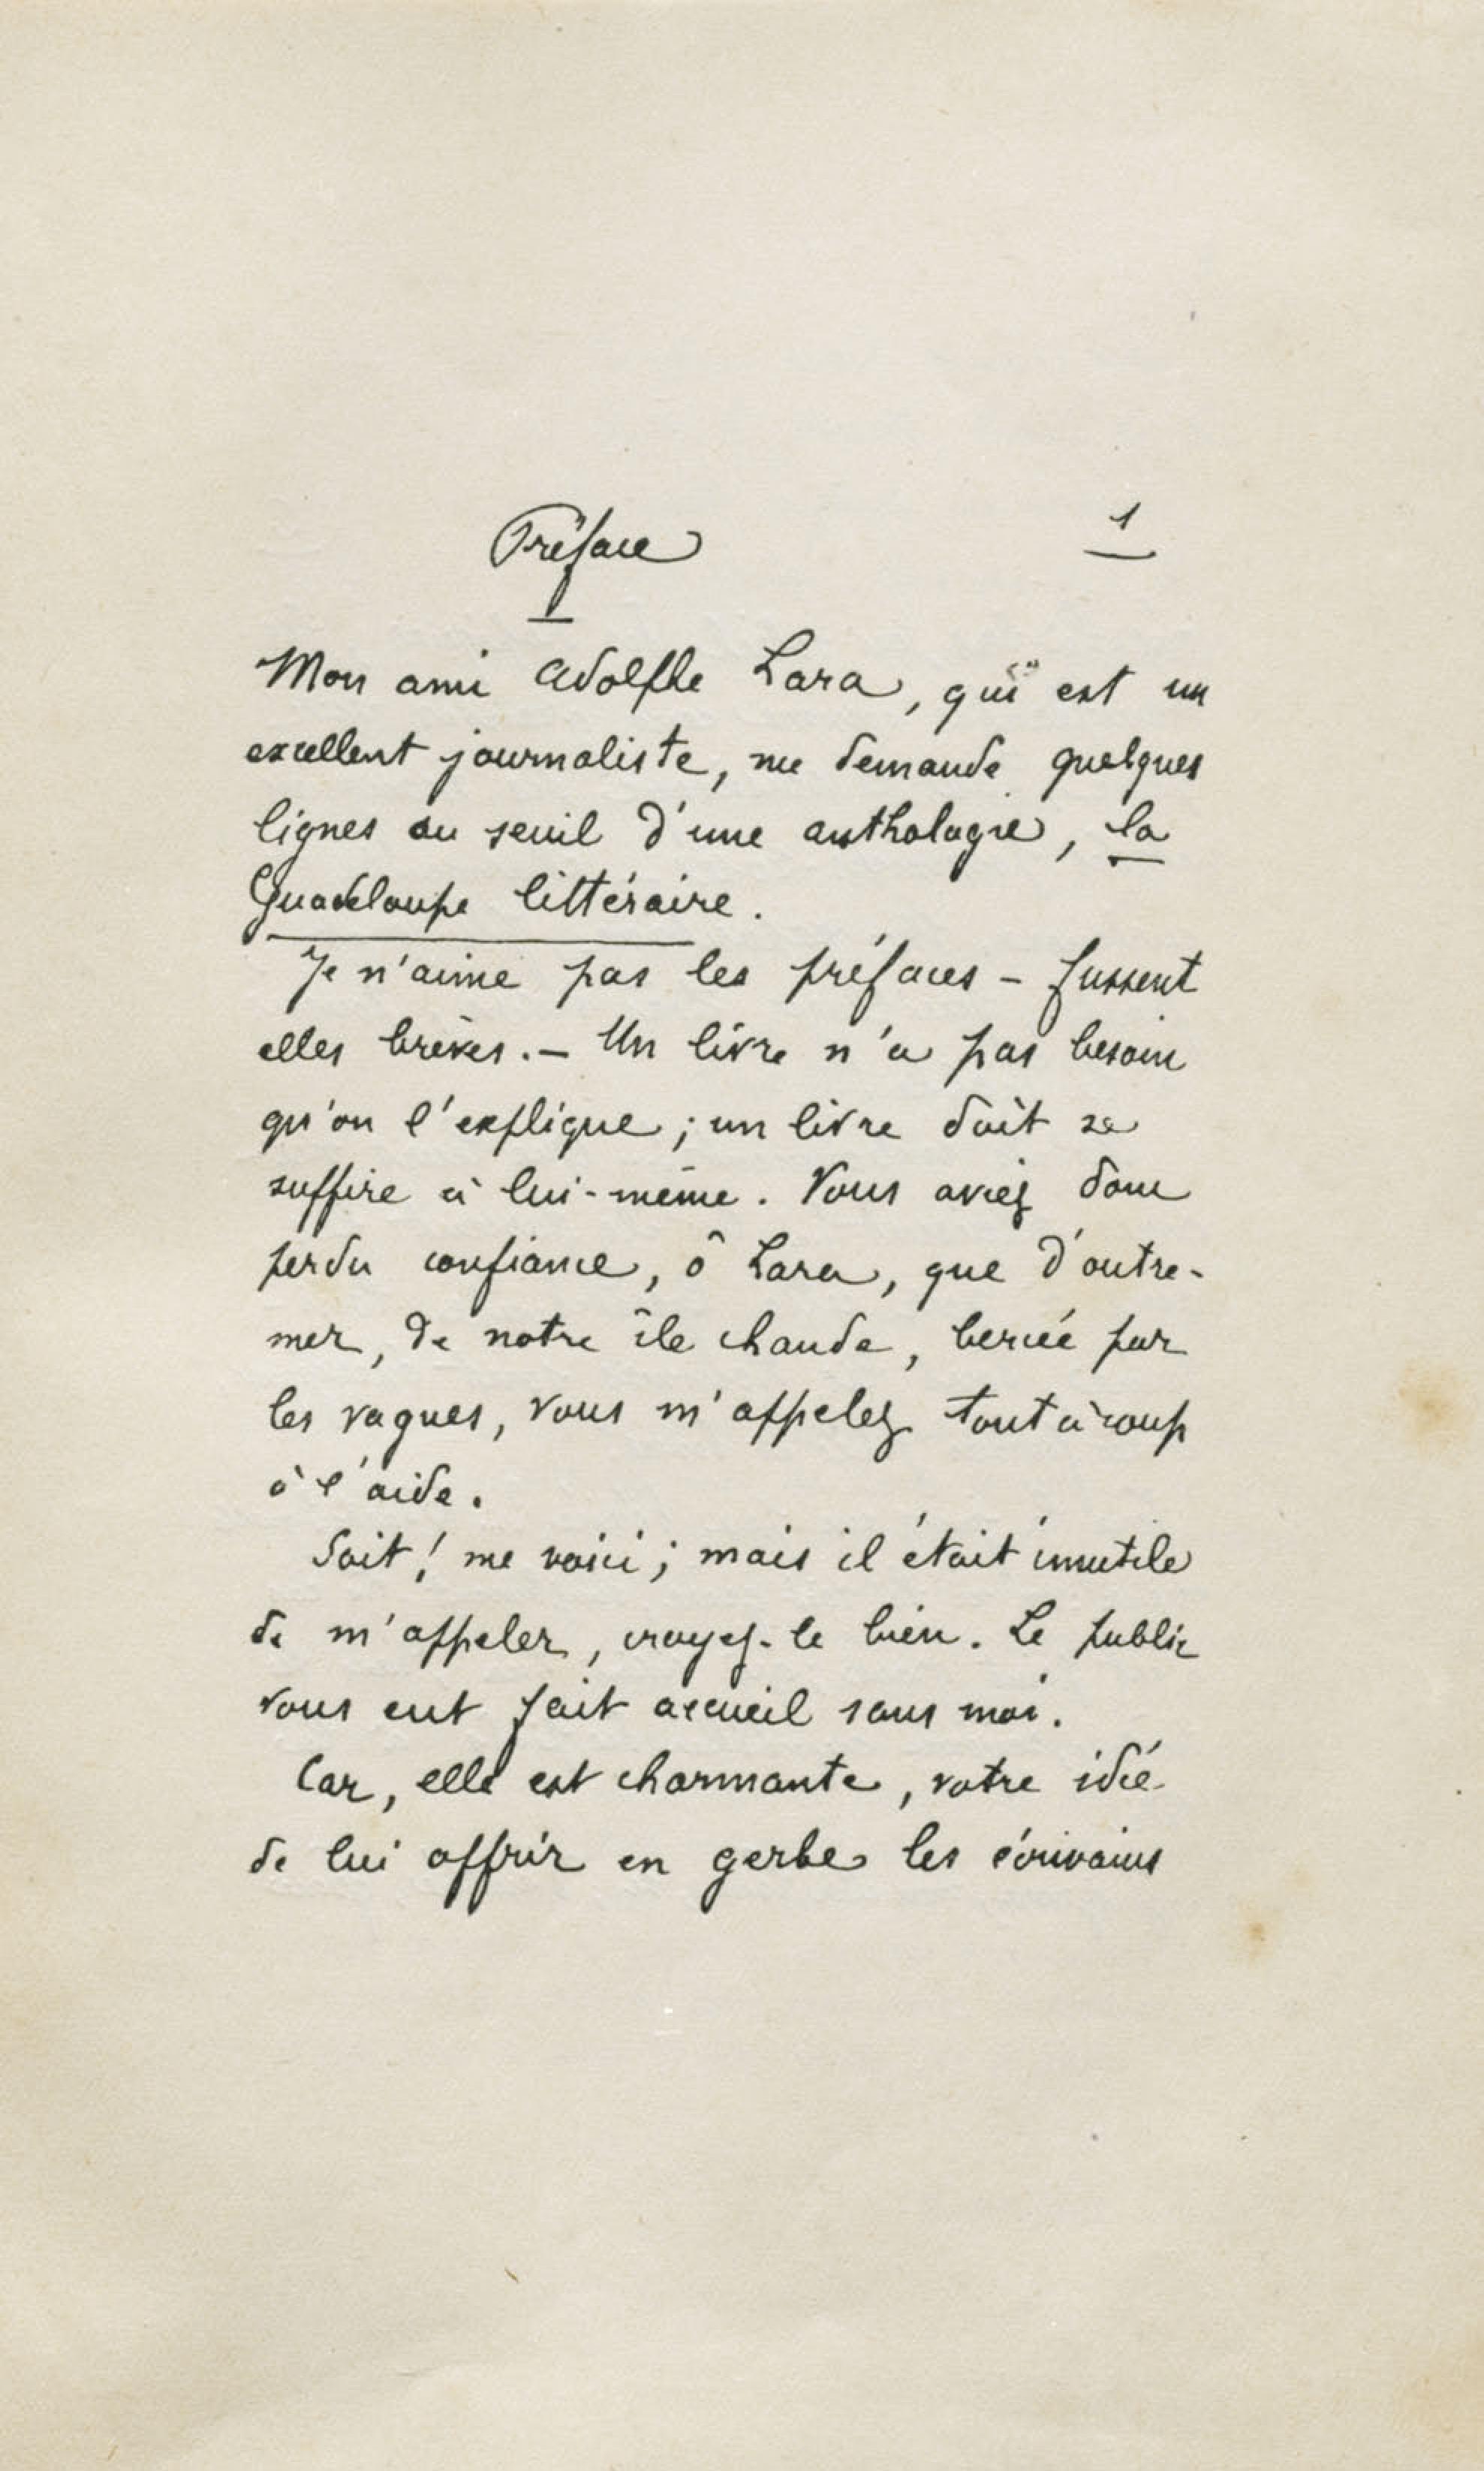 Préface
1
Mon ami Adolphe Lara, qui est un
excellent journaliste, me demande quelques
lignes au seuil d'une anthologie, la
Guadeloupe littéraire.
Je n'aime pas les préfaces - fussent
elles brèves. - Un livre n'a pas besoin
qu'on l'explique ; un livre doit se
suffire à lui-même. Vous aviez donc
perdu confiance, ô Lara, que d'outre-
mer, de notre île chaude, bercée par
les vagues, vous m'appelez tout à coup
à l'aide.
Soit ! me voici ; mais il était inutile
de m'appeler, croyez-le bien. Le public
vous eut fait accueil sans moi.
Car, elle est charmante, votre idée
de lui offrir en gerbe les écrivains